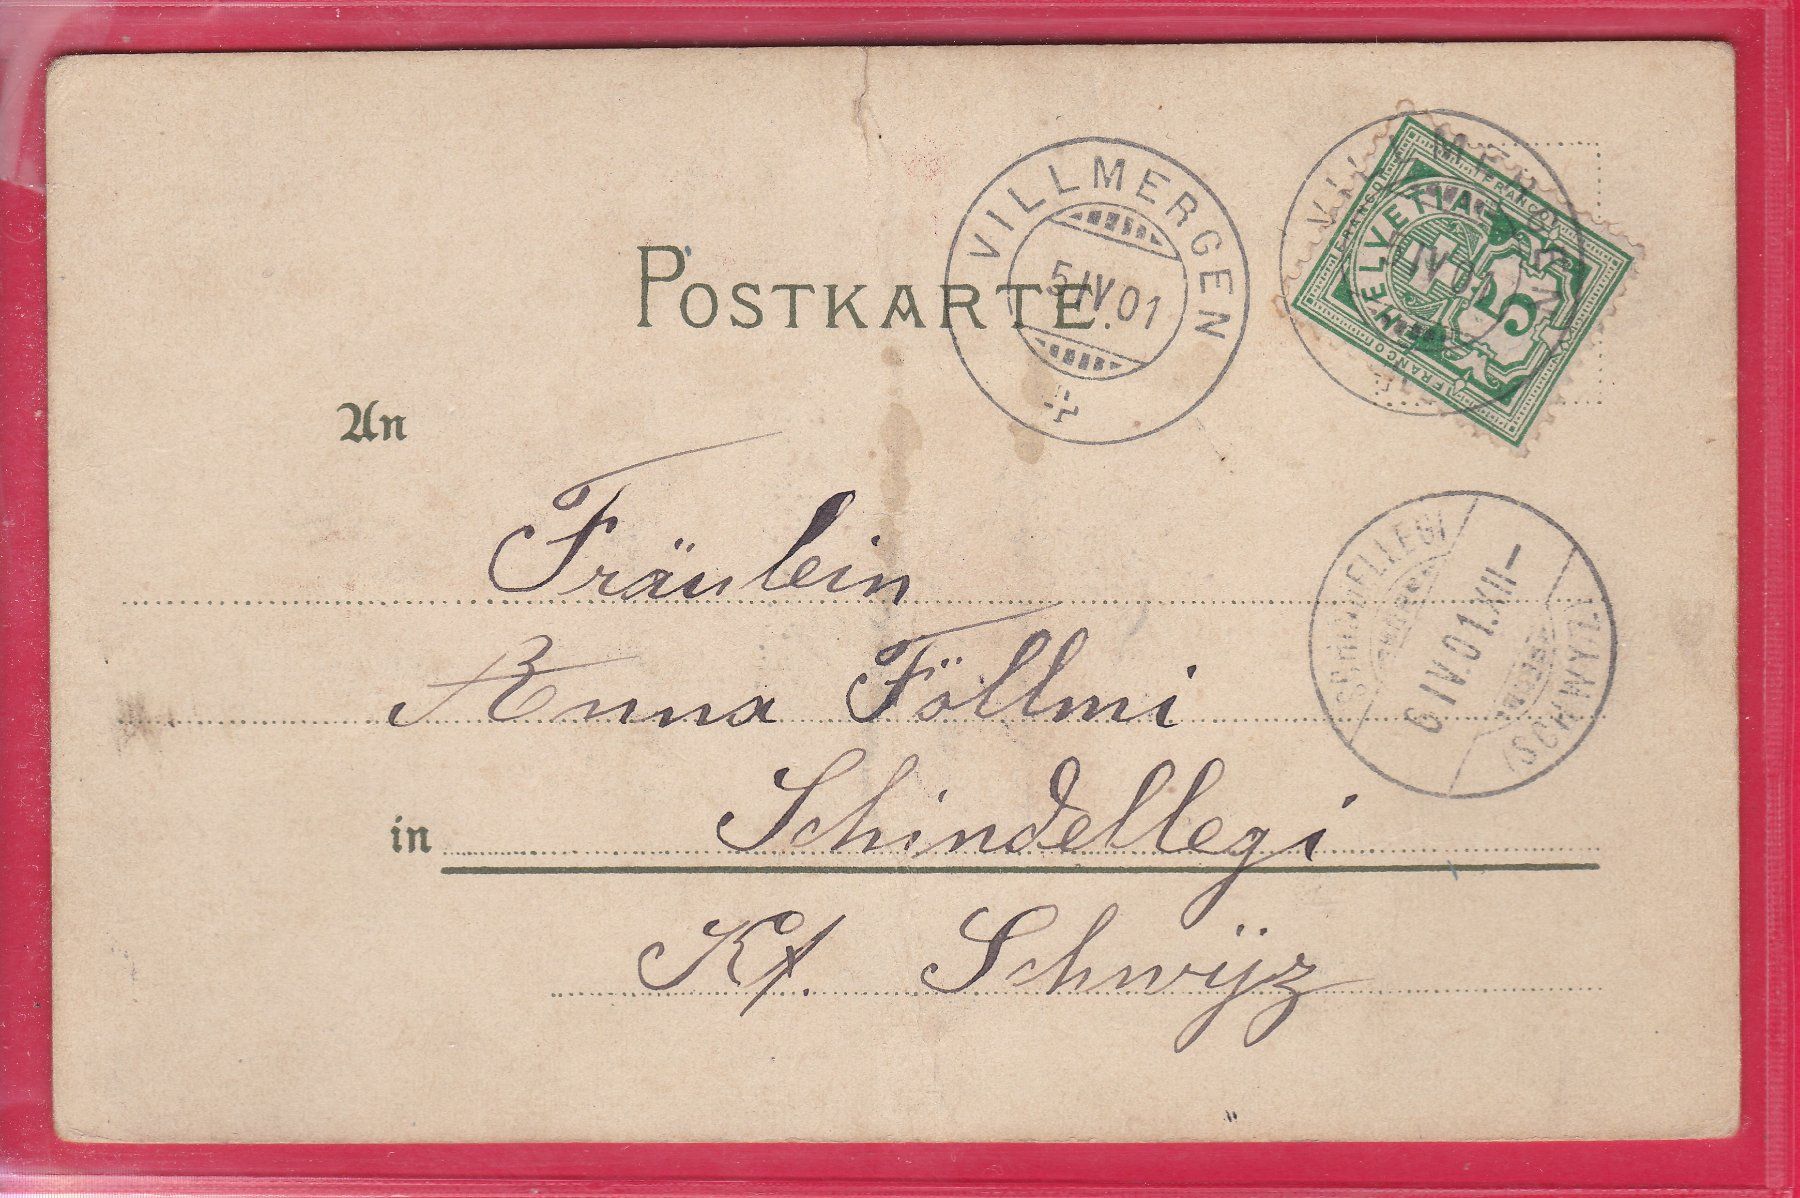 POSTKARTE
VILLMERGEN
5.IV.01
VILLMERGEN
IV 01
FRANCO
HELVETIA
5
An
Fräulein
Anna Föllmi
in Schindellegi
Kt. Schwÿz
SCHINDELLEGI
6.IV.01.XII-
(SCHWYZ)